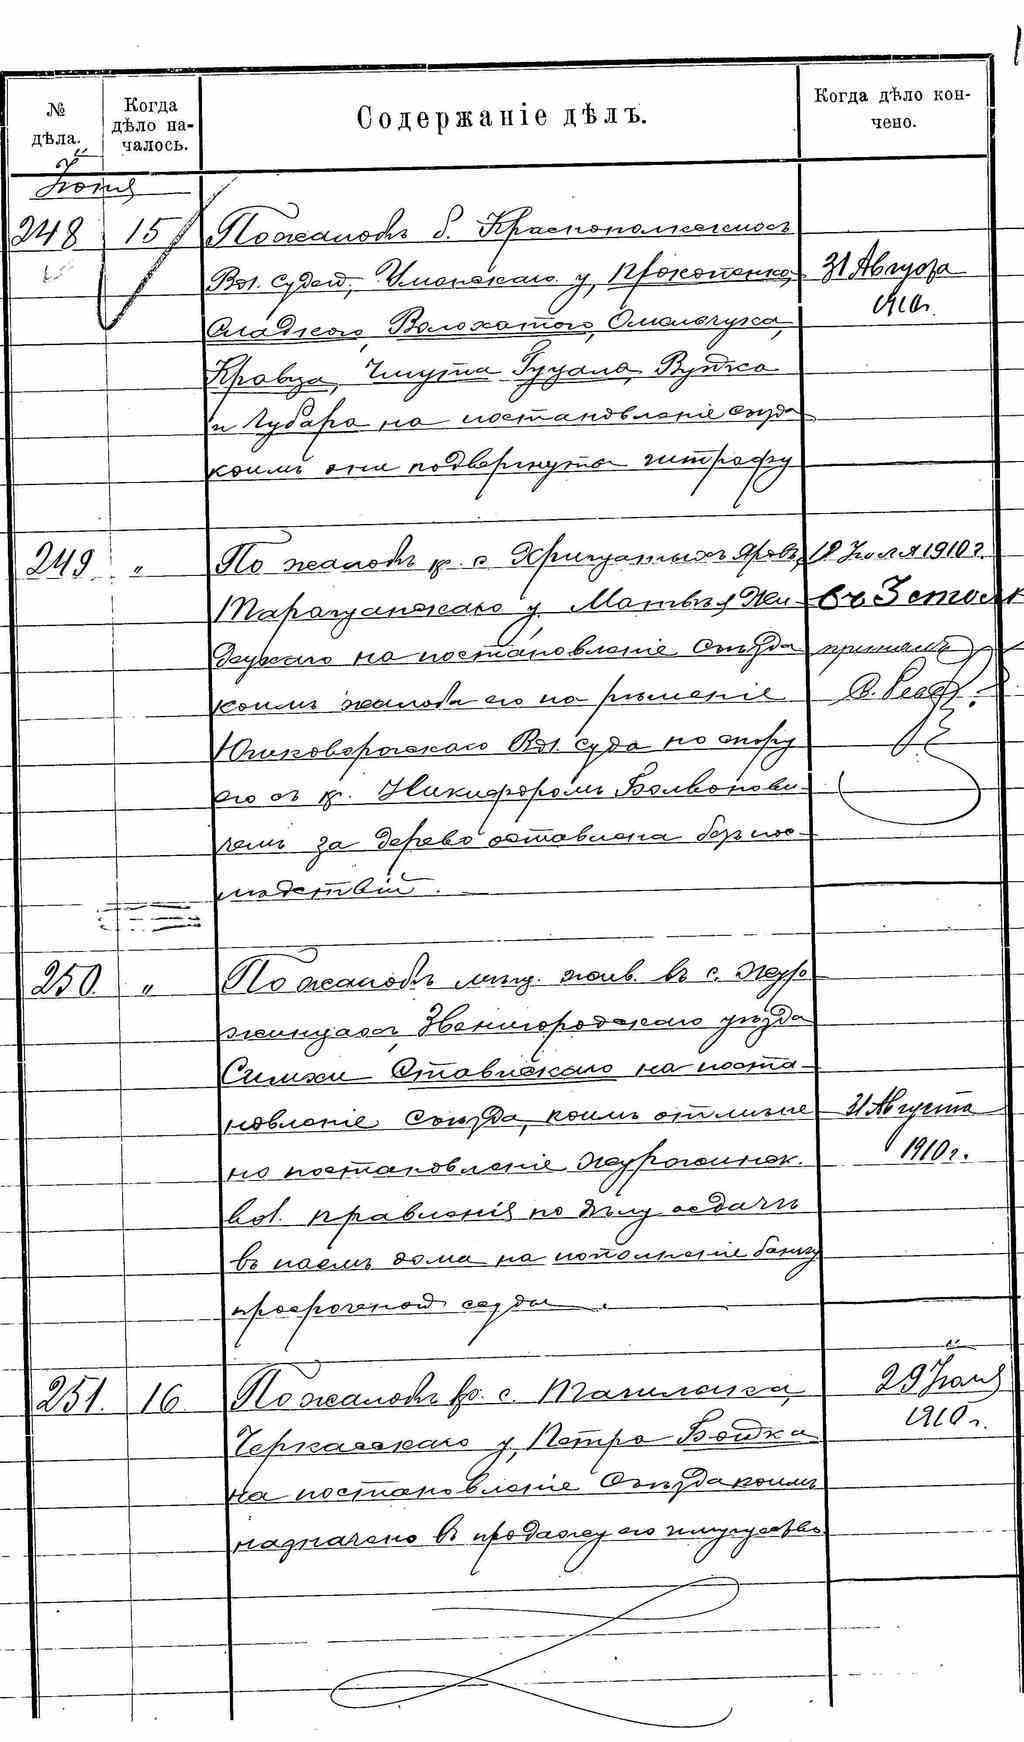 № дѣла.
Когда дѣло началось.
Содержаніе дѣлъ.
Когда дѣло кончено.
Іюня
248 15 По жалобѣ б. Краснопольскихъ
Вол. судей, Уманскаго у, Прокопенко,
Сладкого, Волохатого, Омельчука,
Кравца, Гуцала, Вудка
и Чубара на постановленіе съѣзда
коимъ они подвергнуты штрафу
31 Августа
1910г.
249 " По жалобѣ кр. с. Хрищатыхъ Яровъ,
Таращанскаго у, Матвѣя Жи-
на постановленіе Съѣзда
коимъ жалоба его на рѣшеніе
Вол. суда по спору
его съ кр. Никифоромъ
чемъ за дерево оставлена безъ пос-
лѣдствій.
12 Іюля 1910 г.
въ 3 столъ
250. " По жалобѣ мѣщ. жив. въ с. Журо-
жинцахъ, Звенигородскаго уѣзда
Симхи Ставискаго на поста-
новленіе Съѣзда, коимъ отмѣне-
но постановленіе Журожинск.
вол. правленія по дѣлу отдачѣ
въ наемъ дома на пополненіе банку
просроченой ссуды.
31 Августа
1910 г.
251. 16. По жалобѣ кр. с.
Черкасскаго у, Петра Бойка
на постановленіе Съѣзда коимъ
назначено въ продажу его имущество.
29 Іюня
1910 г.